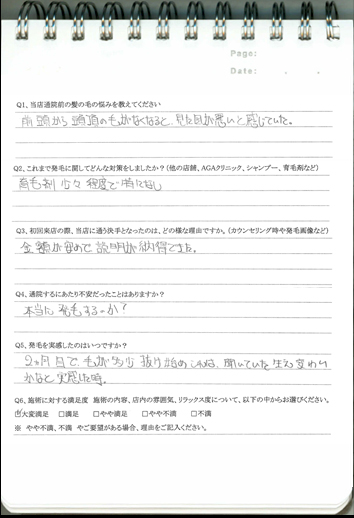 Page:
Date: . .
Q1、当店通院前の髪の毛の悩みを教えてください
前頭から頭頂の毛がなくなると、見た目が悪いと感じていた。
Q2、これまで発毛に関してどんな対策をしましたか？(他の店舗、AGAクリニック、シャンプー、育毛剤など)
育毛剤 少々 程度で 特になし
Q3、初回来店の際、当店に通う決手となったのは、どの様な理由ですか。(カウンセリング時や発毛画像など)
金額が安めで 説明が納得できた。
Q4、通院するにあたり不安だったことはありますか？
本当に 発毛するのか？
Q5、発毛を実感したのはいつですか？
2ヵ月目で、毛が多少 抜け始め これは、聞いていた 生え変わり
かなと 実感した時。
Q6、施術に対する満足度 施術の内容、店内の雰囲気、リラックス度について、以下の中からお選びください。
☑大変満足 □満足 □やや満足 □やや不満 □不満
※ やや不満、不満 やご要望がある場合、理由をご記入ください。